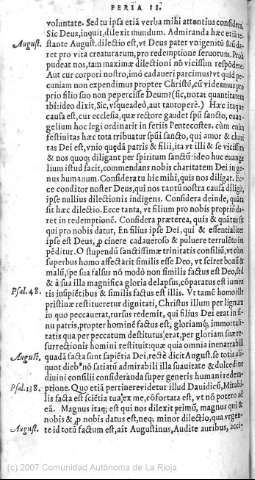 FERIA II.
voluntate. Sed tu ipsa etiā verba mihi attentius considera.
Sic Deus, inquit, dilexit mundum. Admiranda hæc est testante
August. August. dilectio est, vt Deus pater vnigenitū suū daret
pro vita creaturarum, pro redemptione seruorum.
pudeat nos, tam maximæ dilectioni nō vicissim respōdere.
Aut cur corpori nostro, imò cadaueri parcimus vt quid pecuniam
non expendimus propter Christū, cū videamus
prio filio suo non pepercisse Deum? (sic, notat quantitatem
ibi: ideo dixit, Sic, vsqueadeò, aut tantoperè.) Hæc itaque
causa est, cur ecclesia, quæ rectore gaudet spū sancto, euangelium
hoc legi ordinarit in feriis Pentecostes. cùm enim
festiuitas hæc tota tribuatur spūi sancto, qui amor & charitas
Dei est,
& nos quoque diligant per spiritum sanctū: ideo huc euangelium
istud facit, commendans nobis charitatem Dei in genus
humanum. Considera tu hic mihi, quis nos diligat. Ecce
conditor noster Deus, qui nos tātū nostra causa diligit,
ipse nullius dilectionis indigens. Considera deinde, quāta
sit hæc dilectio. Ecce tanta, vt filium pro nobis proprium daret
in redemptionē. Considera præterea, quis & quātus sit
qui pro nobis datur. En filius ipse Dei, qui & essentialiter
ipse est Deus, p cinere cadaueroso & puluere terrulēto impēditur.
O stupendū sanctissimæ trinitatis consiliū, vt cùm
superbus homo affectarit similis esse Deo, vt sciret bonū &
malū, ipse sua falsus nō modò non similis factus est Deo, sed
& à sua illa magnifica gloria delapsus, cōparatus est iumentis
Psal. 48. insipiētibus & similis factus est illis. Vt tamē homo illi
pristinæ restitueretur dignitati, Christus illum per lignum
in quo peccauerat, rursus redemit, qui filius Dei erat in sinu
patris, propter hominē factus est, gloriamq́, immortalitatis
qua per peccatum destitutus erat, per gloriam suæ resurrectionis
homini restituit: quæ omnia inenarrabili
August. quadā facta sunt sapiētia Dei, rectè dicit August. se totis aliquot
diebus nō satiatū admirabili illa suauitate & dulcedine
diuini consilii consideranda super generis humani redemptione.
Psal. 138. Quo etiā pertinere videtur illud Dauidicū, Mirabilis
facta est sciētia tua ex me, cōfortata est, vt nō potero ad
eā. Magnus itaque est qui nos dilexit primū, magnus qui à
nobis & p nobis datus est, neq. minor dilectio, qua vrgente
August. id totū factum est, ait Augustinus, Audite auribus,
(c) 2007 Comunidad Autónoma de La Rioja